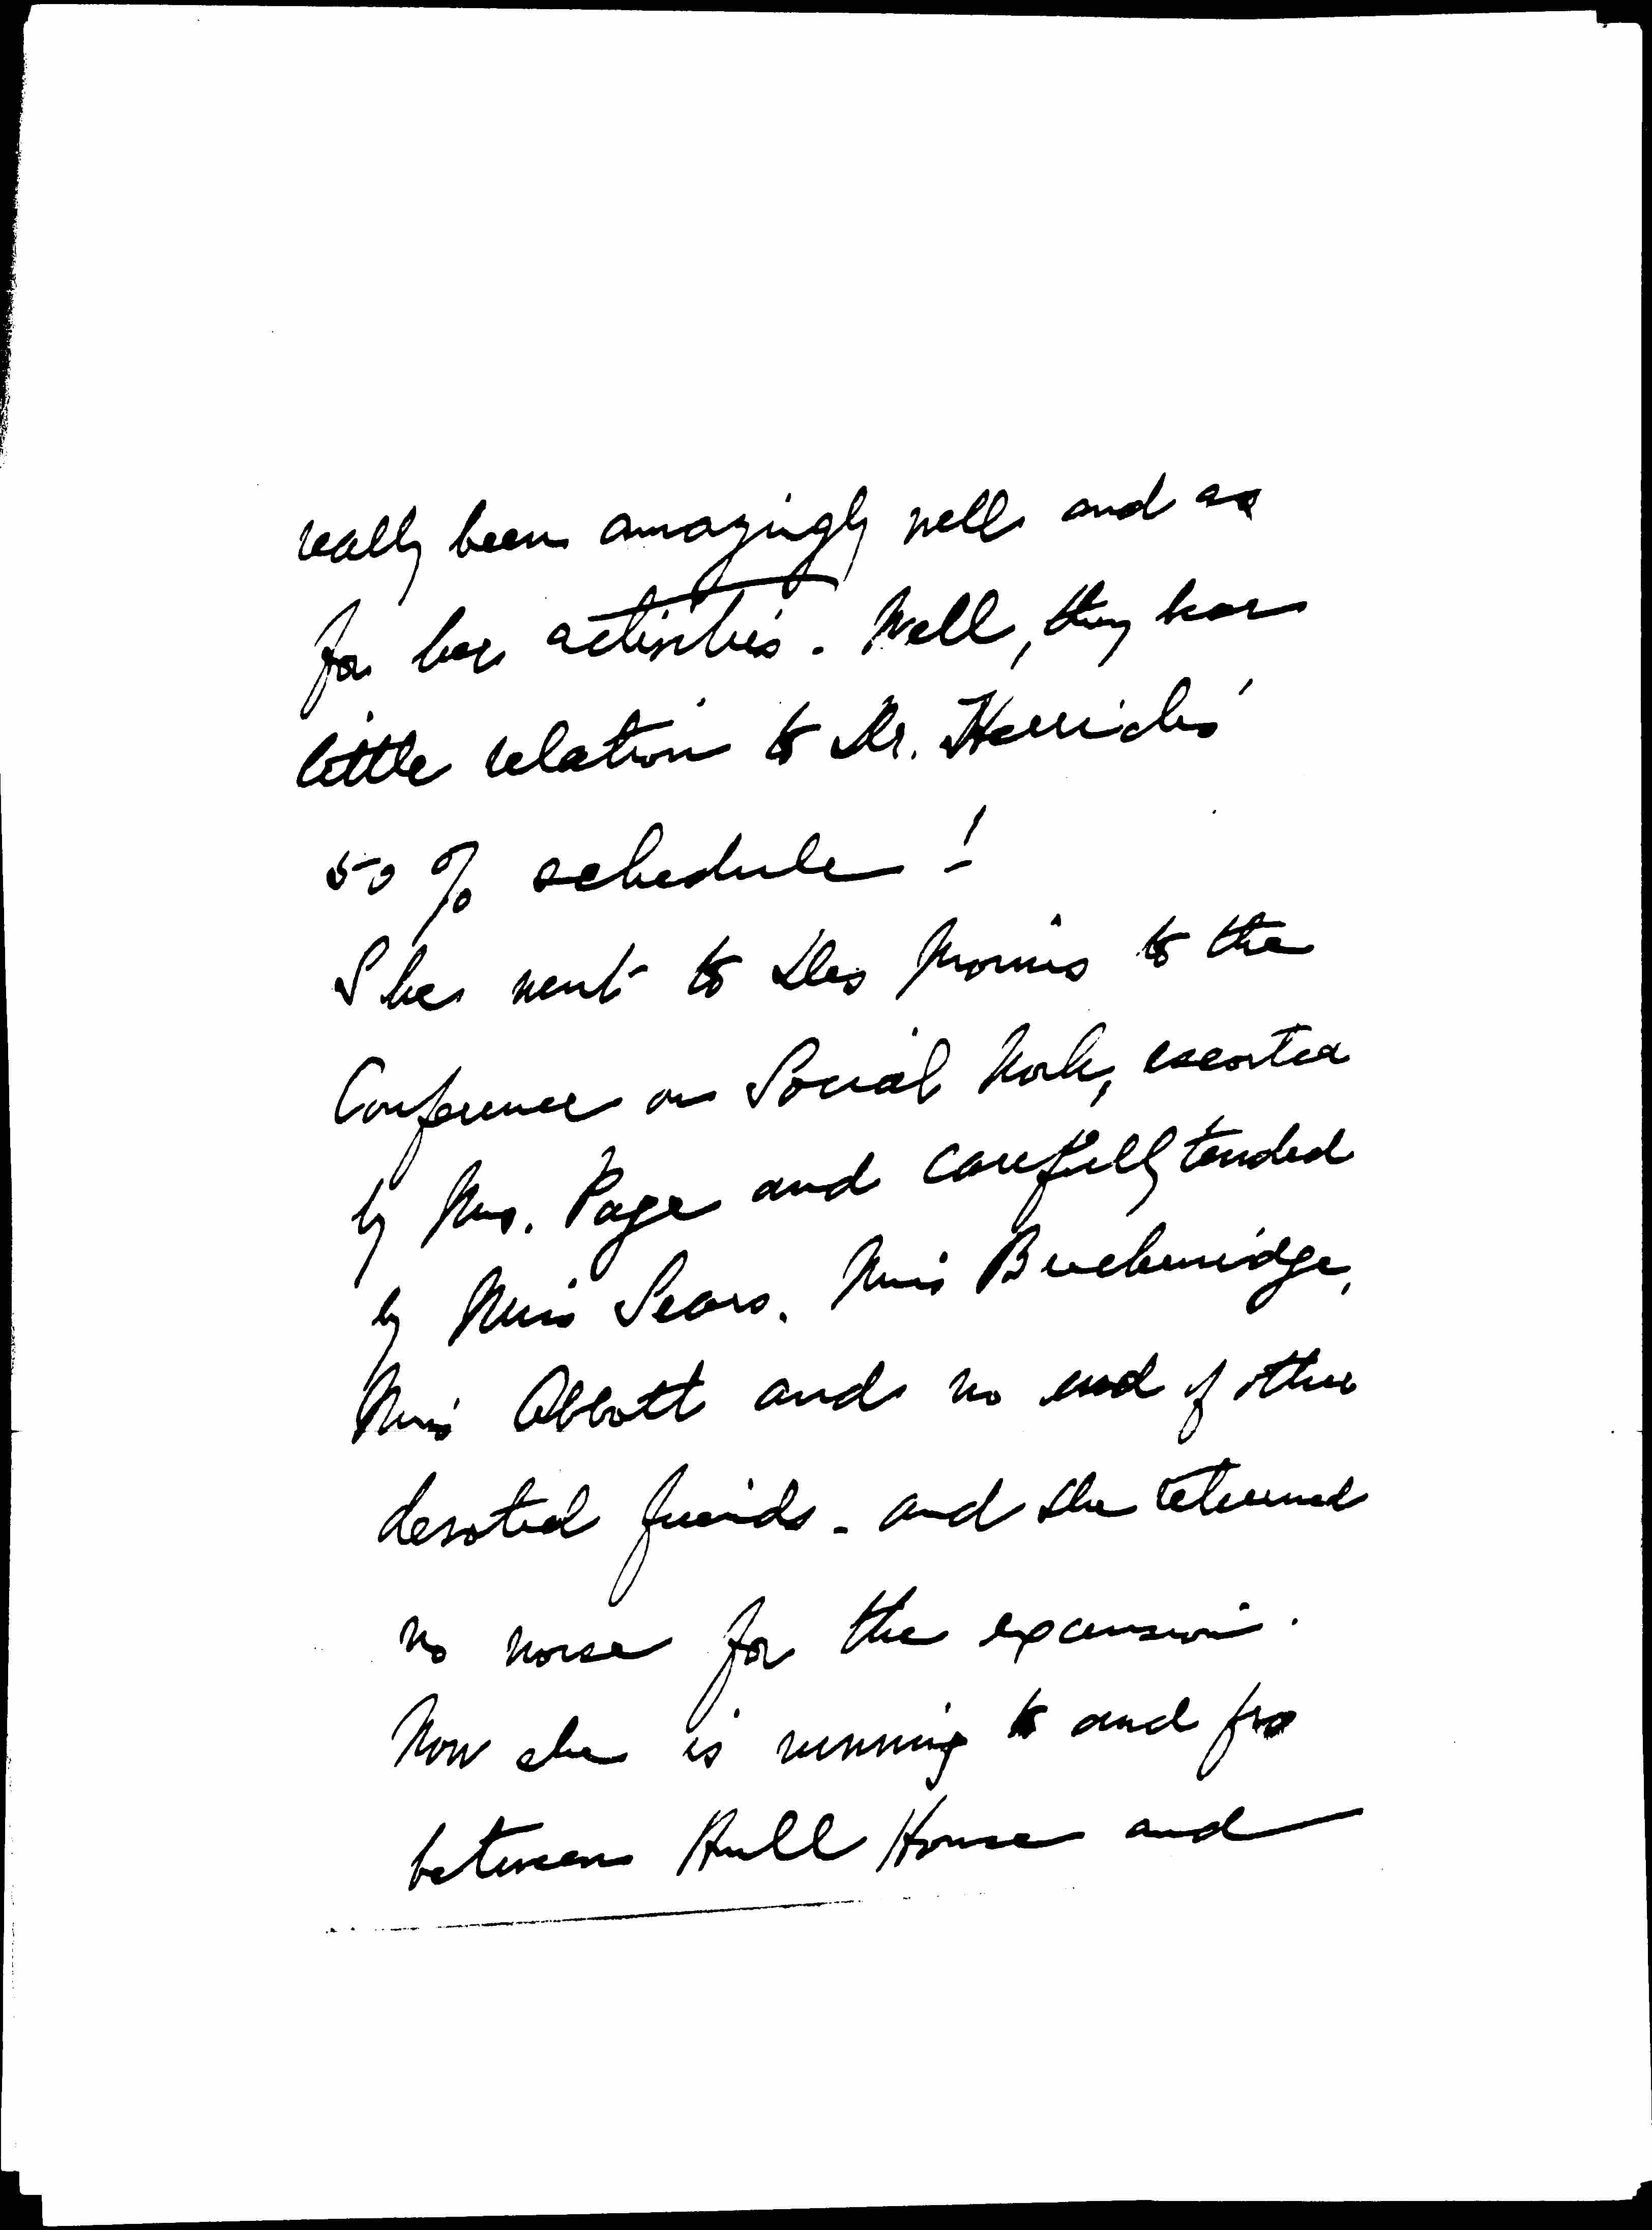 really been amazingly well and as
for her activities. Well, they bear
little relation to Dr. Herrick's
50% schedule!
She went to Des Moines to the
Conference on Social Work, escorted
by Mrs. Page and carefully tended
by Miss Sears. Miss Breckinridge,
Miss Abbott and no end of other
devoted friends - and she returned
no worse for the excursion.
Now she is running to and fro
between Hull House and